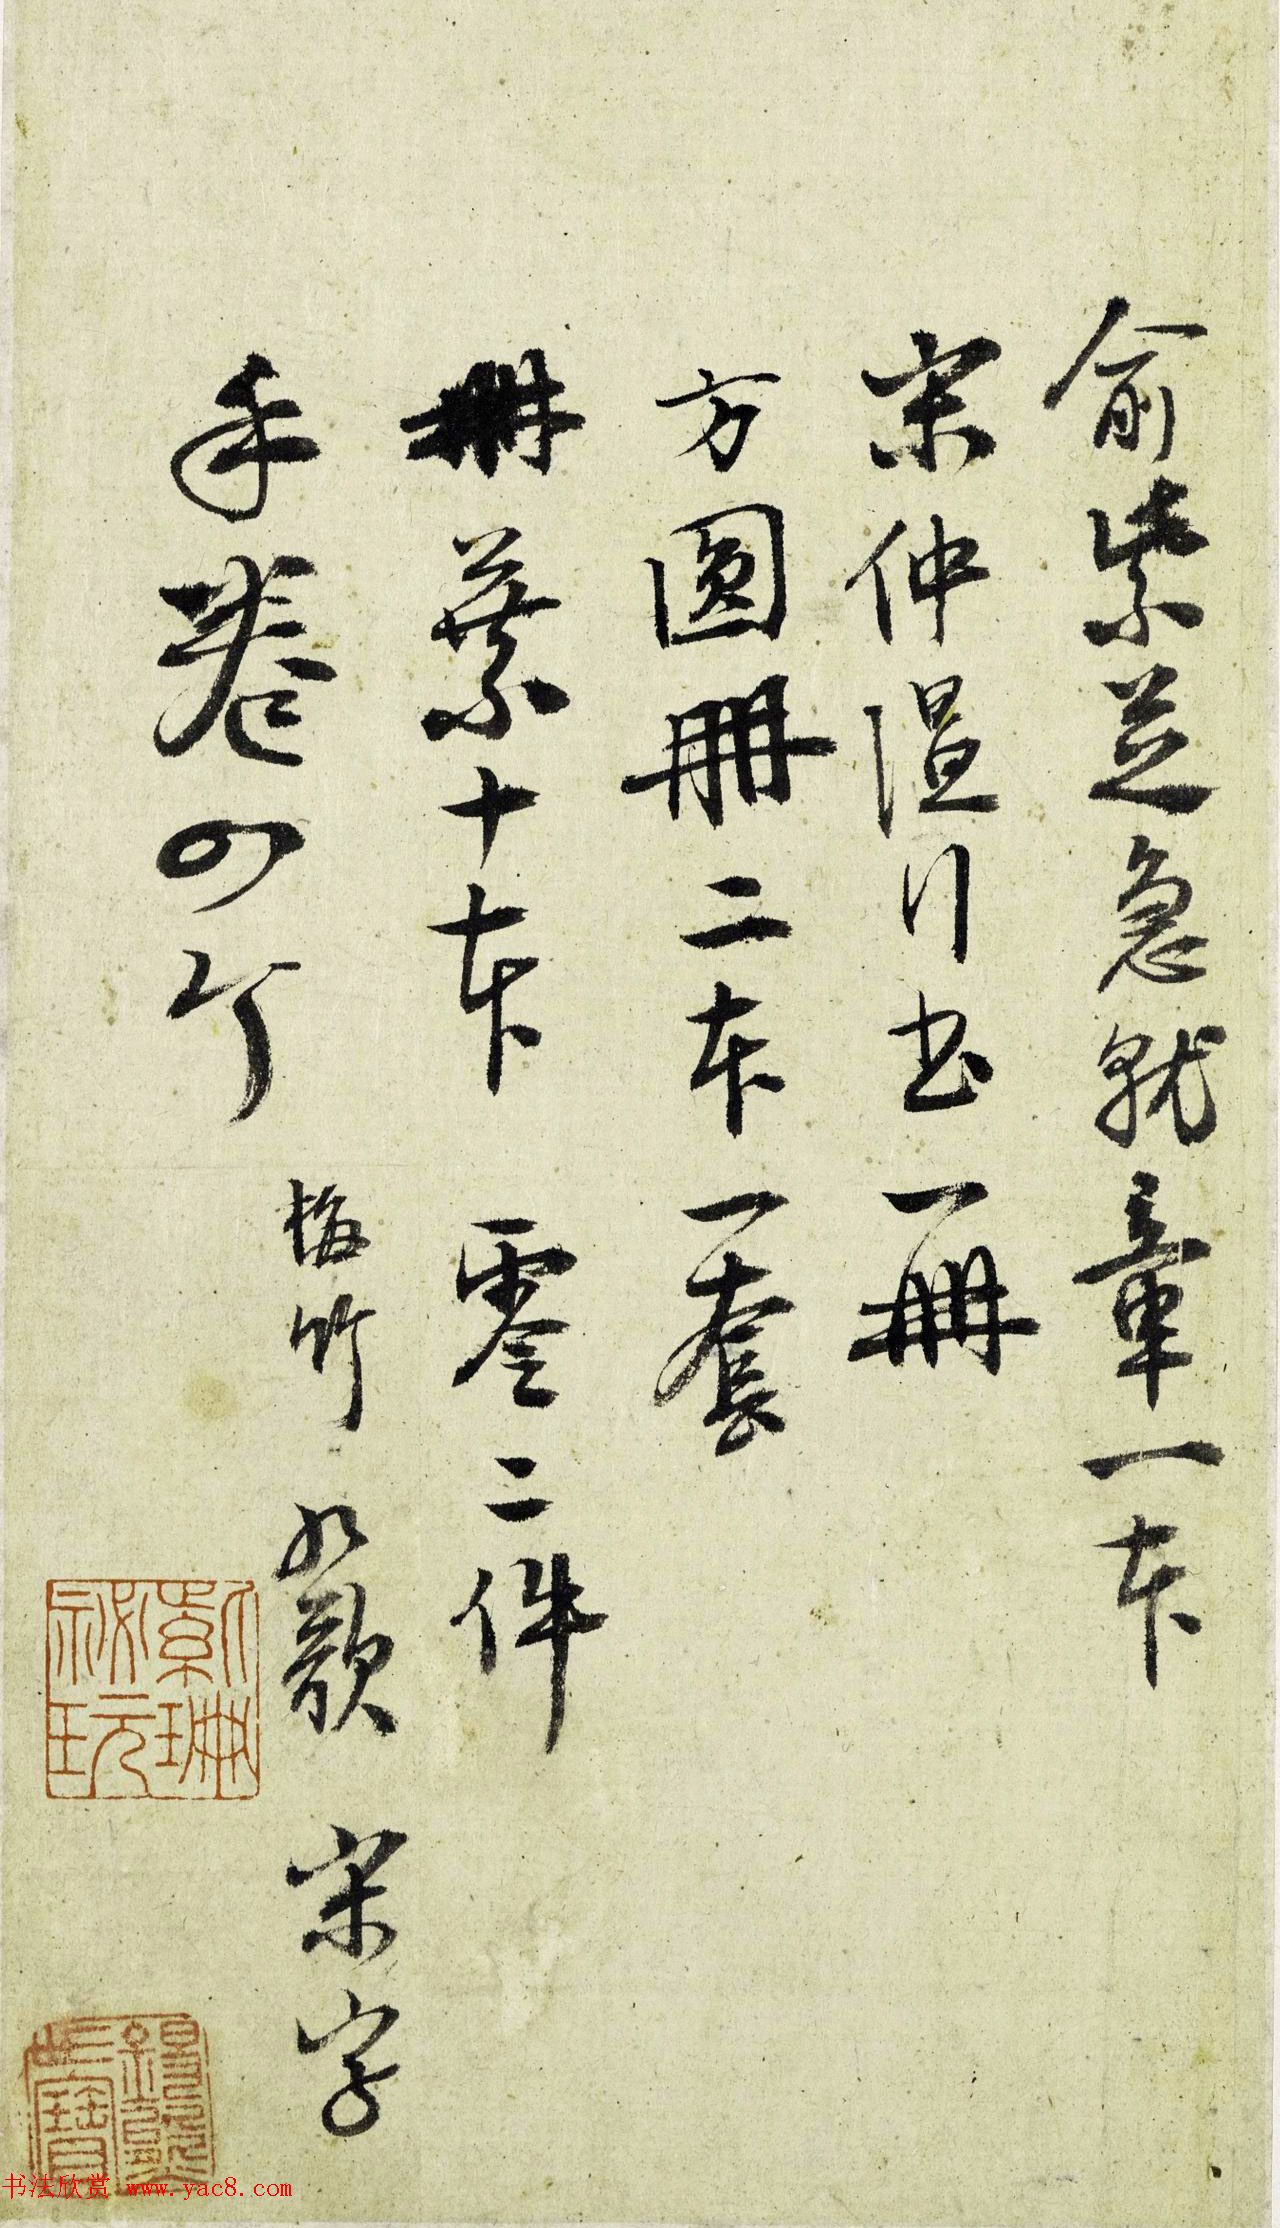 俞紫芝急就章一本
宋仲温行书一册
方圆册二本一套
册葉十本 零二件
手卷四个
梅竹 九歌 宋字
书法欣赏 www.yac8.com